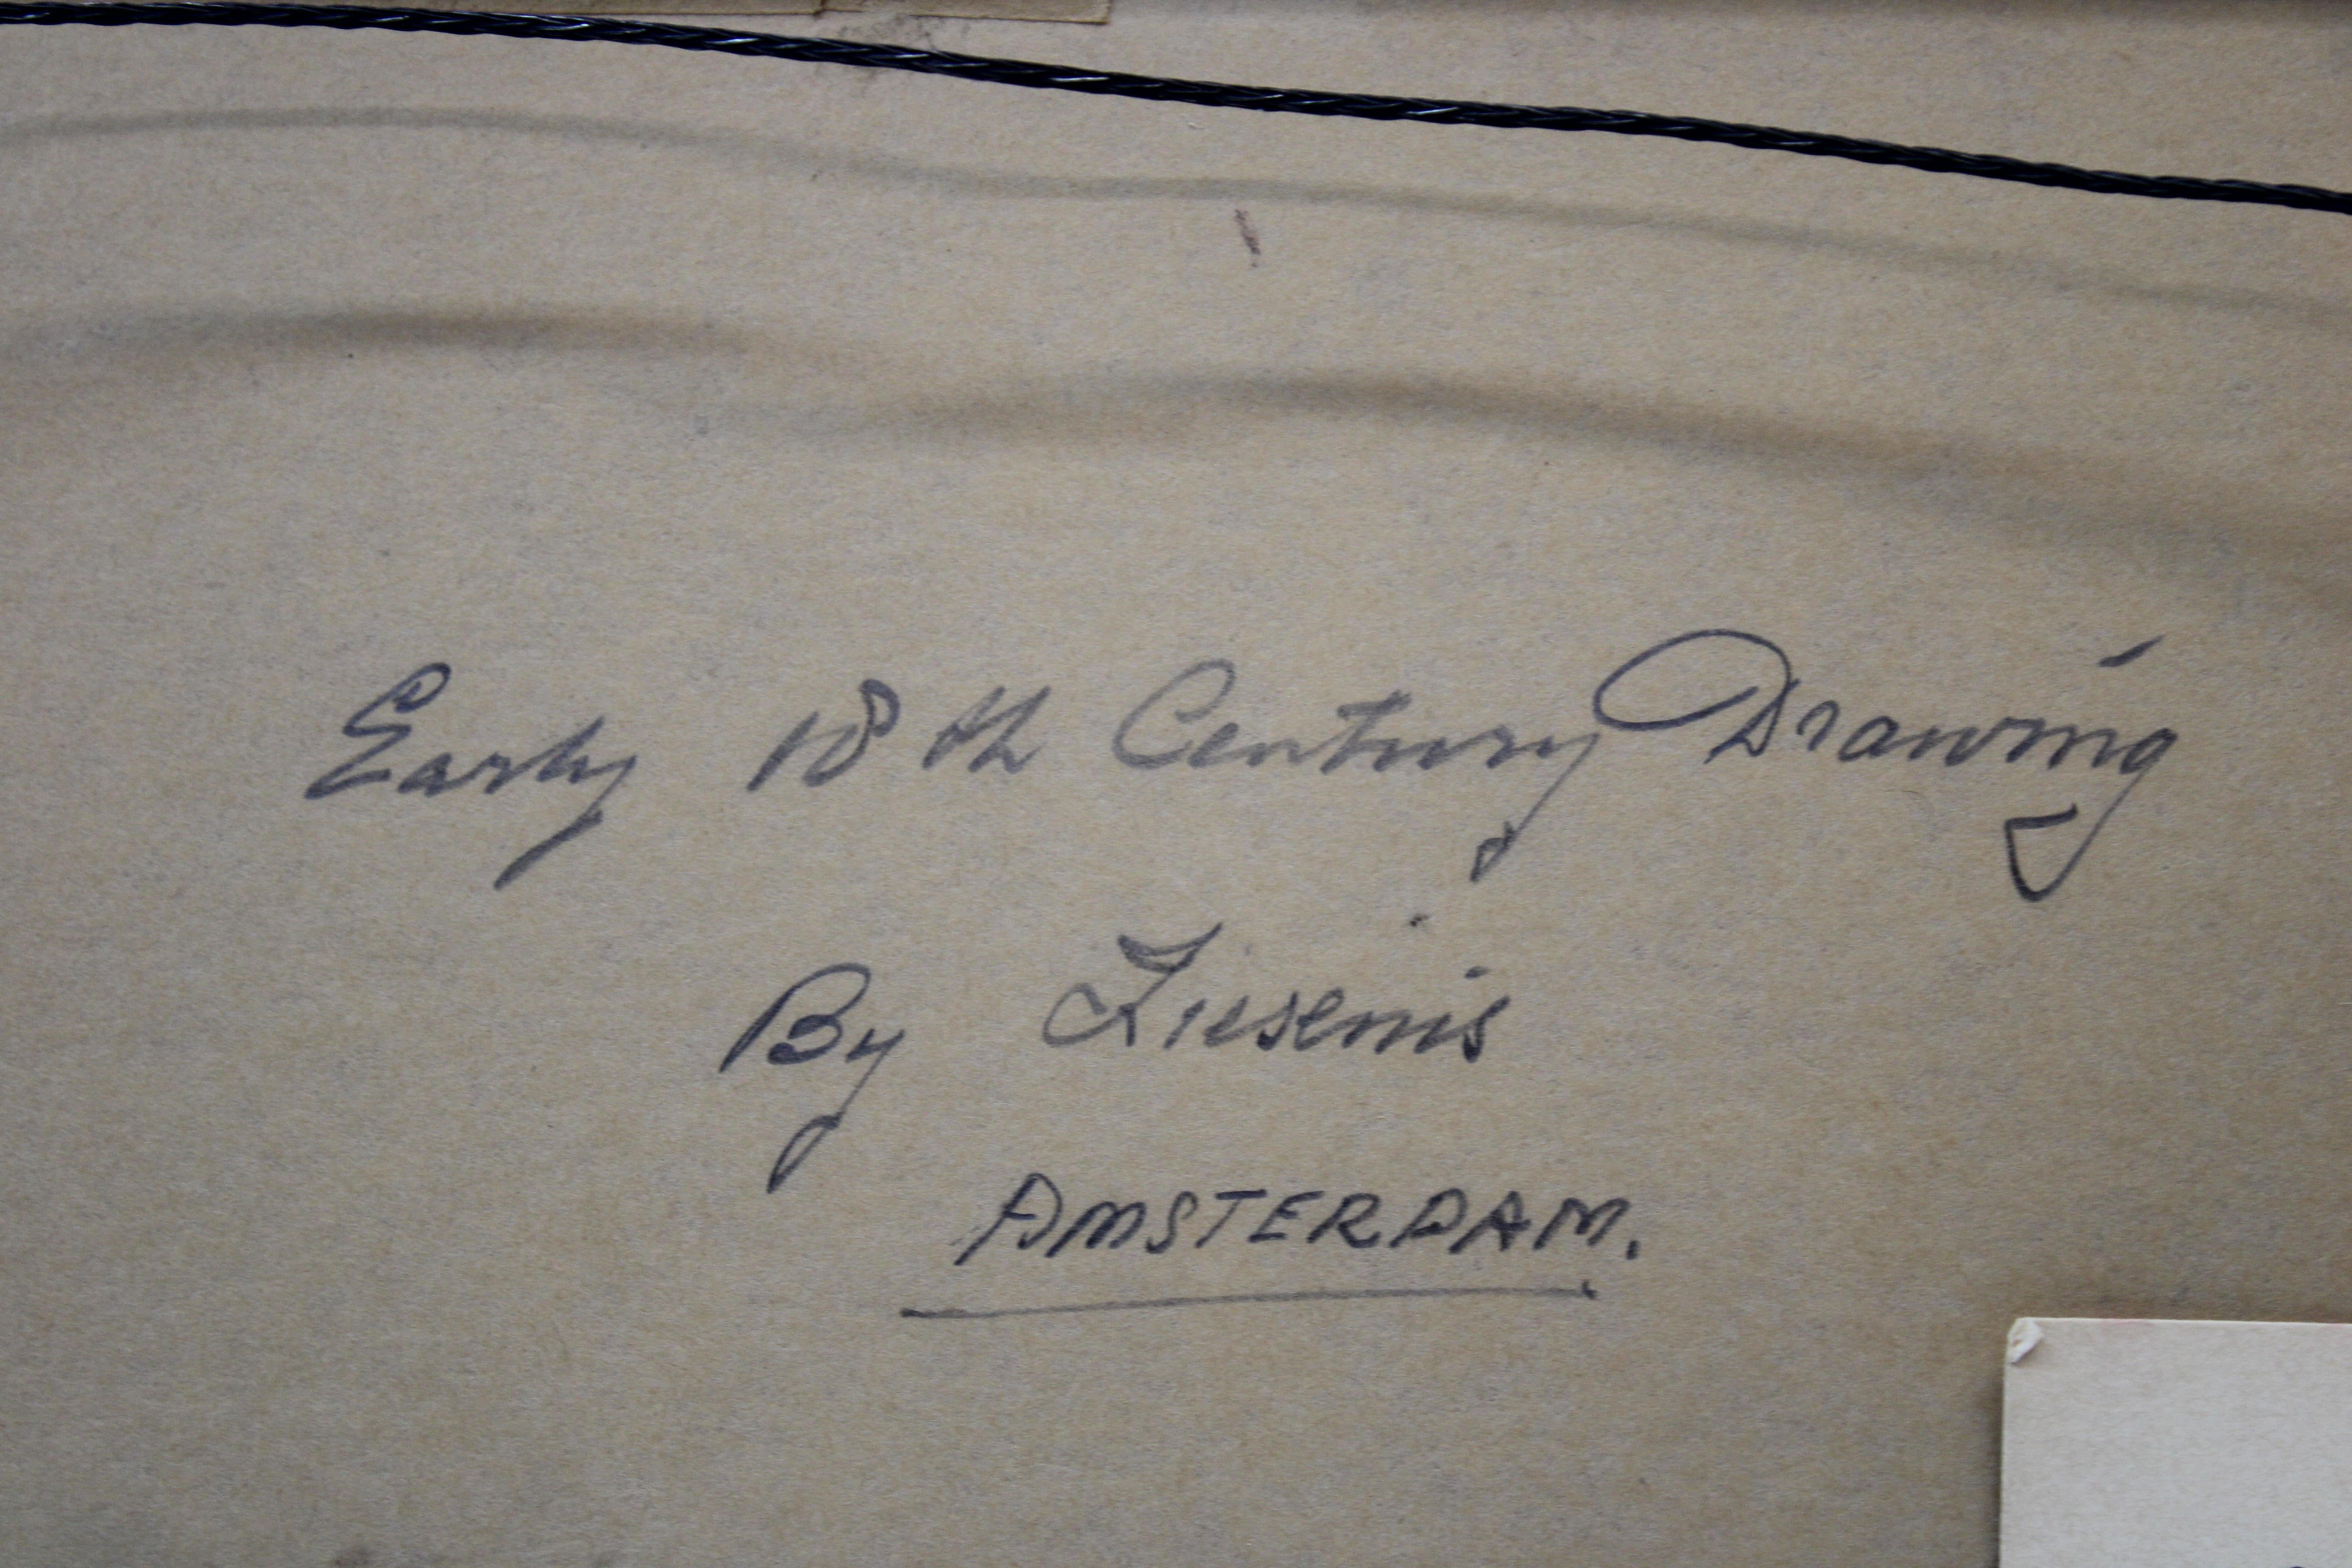 Early 18th Century Drawing
By Ziesenis
AMSTERDAM.